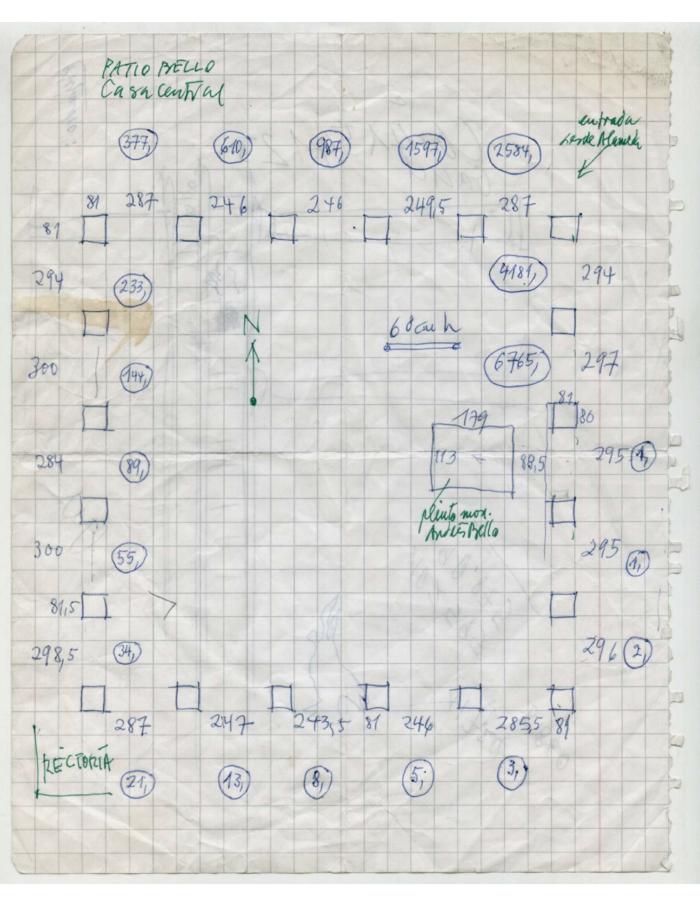 PATIO BELLO
Casa central
entrada
desde Alameda
377, 610, 987, 1597, 2584,
81 287 246 246 249,5 287
81
294 233, 4181, 294
N
68 cm h
300 144, 6765, 297
179 81 80
113 89,5
284 89, 295 1,
plinto mon.
Andrés Bello
300 55, 295 1,
81,5
298,5 34, 296 2,
287 247 243,5 81 246 285,5 81
RECTORÍA
21, 13, 8, 5, 3,